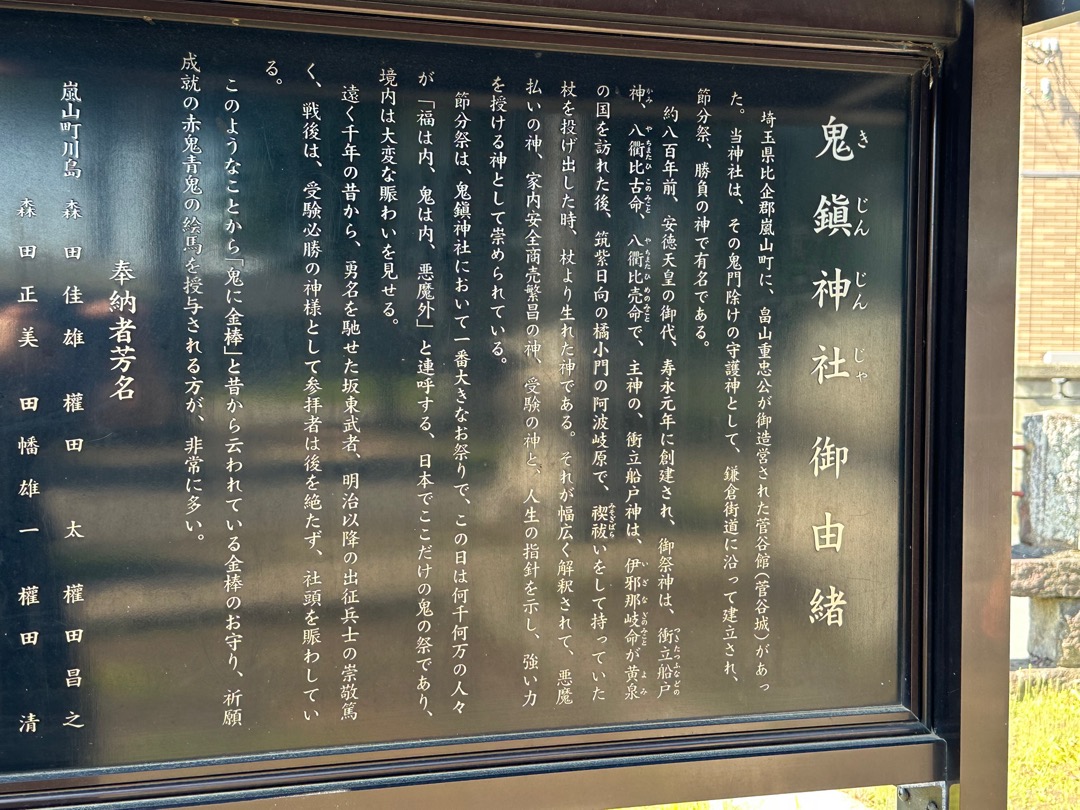 鬼鎭神社御由緒
きじんじんじゃ
埼玉県比企郡嵐山町に、畠山重忠公が御造営された菅谷館(菅谷城)があっ
た。当神社は、その鬼門除けの守護神として、鎌倉街道に沿って建立され、
節分祭、勝負の神で有名である。
約八百年前、安徳天皇の御代、寿永元年に創建され、御祭神は、衝立船戸
つきたつふなどの
神、八衢比古命、八衢比売命で、主神の、衝立船戸神は、伊邪那岐命が黄泉
かみ やちまたひこのみこと やちまたひめのみこと いざなぎのみこと よみ
の国を訪れた後、筑紫日向の橘小門の阿波岐原で、禊祓いをして持っていた
みそぎばら
杖を投げ出した時、杖より生れた神である。それが幅広く解釈されて、悪魔
払いの神、家内安全商売繁昌の神、受験の神と、人生の指針を示し、強い力
を授ける神として崇められている。
節分祭は、鬼鎭神社において一番大きなお祭りで、この日は何千何万の人々
が「福は内、鬼は内、悪魔外」と連呼する、日本でここだけの鬼の祭であり、
境内は大変な賑わいを見せる。
遠く千年の昔から、勇名を馳せた坂東武者、明治以降の出征兵士の崇敬篤
く、戦後は、受験必勝の神様として参拝者は後を絶たず、社頭を賑わしてい
る。
このようなことから「鬼に金棒」と昔から云われている金棒のお守り、祈願
成就の赤鬼青鬼の絵馬を授与される方が、非常に多い。
奉納者芳名
嵐山町川島 森田佳雄 權田太 權田昌之
森田正美 田幡雄一 權田清